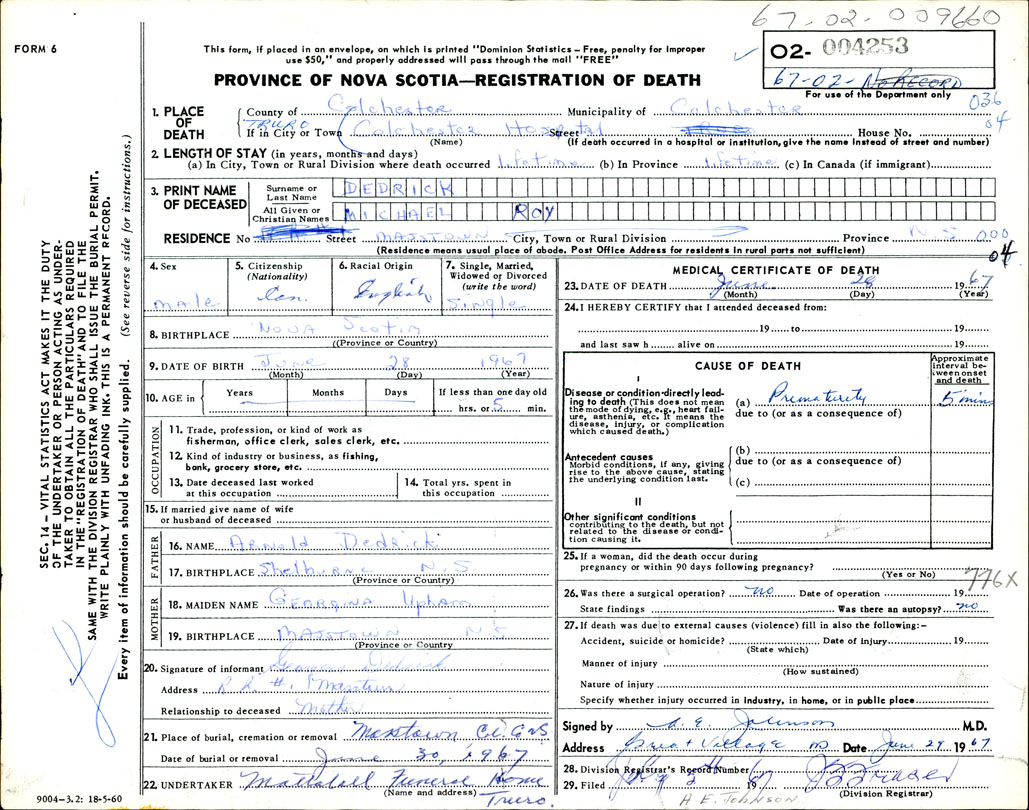 67-02-009660
FORM 6
This form, if placed in an envelope, on which is printed "Dominion Statistics – Free, penalty for Improper
use $50," and properly addressed will pass through the mail "FREE"
02- 004253
67-02- No RECORD
For use of the Department only
PROVINCE OF NOVA SCOTIA—REGISTRATION OF DEATH
036
04
1. PLACE OF DEATH
County of Colchester Municipality of Colchester
TRURO
If in City or Town Colchester Hospital Street House No.
(Name) (If death occurred in a hospital or institution, give the name instead of street and number)
2. LENGTH OF STAY (in years, months and days)
(a) In City, Town or Rural Division where death occurred lifetime (b) In Province lifetime (c) In Canada (if immigrant)
3. PRINT NAME OF DECEASED
Surname or Last Name DEDRICK
All Given or Christian Names MICHAEL ROY
RESIDENCE No Street MASSTOWN City, Town or Rural Division Province N.S. 000
(Residence means usual place of abode. Post Office Address for residents in rural parts not sufficient)
04
4. Sex
male
5. Citizenship
(Nationality)
Can.
6. Racial Origin
English
7. Single, Married, Widowed or Divorced
(write the word)
Single
8. BIRTHPLACE NOVA SCOTIA
((Province or Country)
9. DATE OF BIRTH June 28 1967
(Month) (Day) (Year)
10. AGE in
Years
Months
Days
If less than one day old
hrs. or 5 min.
OCCUPATION
11. Trade, profession, or kind of work as
fisherman, office clerk, sales clerk, etc.
12. Kind of industry or business, as fishing,
bank, grocery store, etc.
13. Date deceased last worked
at this occupation
14. Total yrs. spent in
this occupation
15. If married give name of wife
or husband of deceased
FATHER
16. NAME Arnold Dedrick
17. BIRTHPLACE Shelburne N.S.
(Province or Country)
MOTHER
18. MAIDEN NAME Georgina Upham
19. BIRTHPLACE MASSTOWN N.S
(Province or Country
20. Signature of informant Georgina Dedrick
Address R R #1 Masstown
Relationship to deceased Mother
21. Place of burial, cremation or removal Masstown Col. Co NS
Date of burial or removal June 30, 1967
22. UNDERTAKER Mattatall Funeral Home
(Name and address) Truro.
9004-3.2: 18-5-60
MEDICAL CERTIFICATE OF DEATH
23. DATE OF DEATH June 28 1967
(Month) (Day) (Year)
24. I HEREBY CERTIFY that I attended deceased from:
19 to 19
and last saw h alive on 19
CAUSE OF DEATH
Approximate interval between onset and death
I
Disease or condition directly leading to death (This does not mean the mode of dying, e.g., heart failure, asthenia, etc. It means the disease, injury, or complication which caused death.)
(a) Prematurity 5 min
due to (or as a consequence of)
Antecedent causes
Morbid conditions, if any, giving rise to the above cause, stating the underlying condition last.
(b)
due to (or as a consequence of)
(c)
II
Other significant conditions
contributing to the death, but not related to the disease or condition causing it.
25. If a woman, did the death occur during
pregnancy or within 90 days following pregnancy?
(Yes or No)
776X
26. Was there a surgical operation? no Date of operation 19
State findings Was there an autopsy? no
27. If death was due to external causes (violence) fill in also the following:–
Accident, suicide or homicide? Date of injury 19
(State which)
Manner of injury
(How sustained)
Nature of injury
Specify whether injury occurred in industry, in home, or in public place
Signed by A. E. Johnson M.D.
Address Great Village NS Date June 29 1967
28. Division Registrar's Record Number
29. Filed 19 67
(Division Registrar)
A E. JOHNSON
SEC. 14 – VITAL STATISTICS ACT MAKES IT THE DUTY
OF THE UNDERTAKER OR PERSON ACTING AS UNDER-
TAKER TO OBTAIN ALL THE PARTICULARS REQUIRED
IN THE "REGISTRATION OF DEATH" AND TO FILE THE
SAME WITH THE DIVISION REGISTRAR WHO SHALL ISSUE THE BURIAL PERMIT.
WRITE PLAINLY WITH UNFADING INK. THIS IS A PERMANENT RECORD.
Every item of information should be carefully supplied. (See reverse side for instructions.)